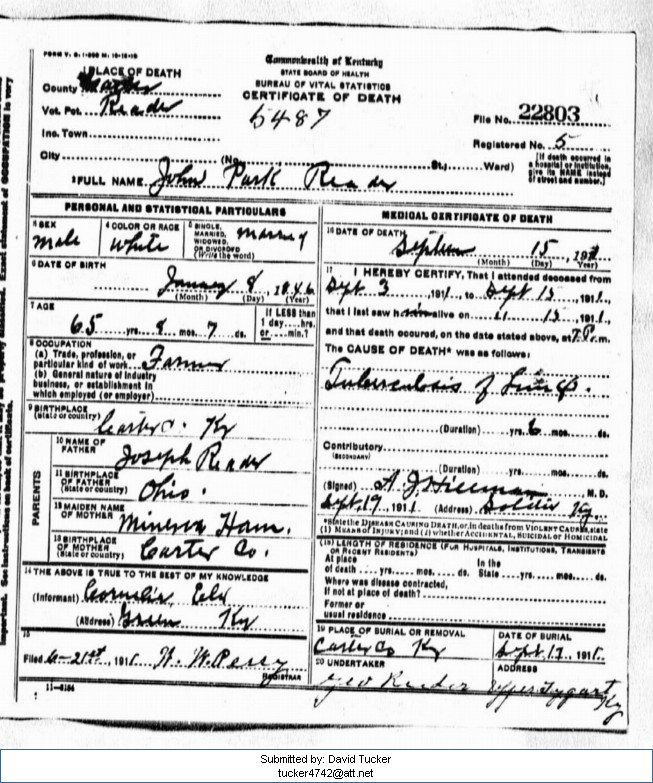 FORM V. S. 1-
Commonwealth of Kentucky
STATE BOARD OF HEALTH
BUREAU OF VITAL STATISTICS
CERTIFICATE OF DEATH
1 PLACE OF DEATH
County Carter
Vot. Pct. Reader
5487
File No. 22803
Inc. Town
Registered No. 5
City (No. St.; Ward)
[If death occurred in a hospital or institution, give its NAME instead of street and number.]
2 FULL NAME John Park Reader
PERSONAL AND STATISTICAL PARTICULARS
MEDICAL CERTIFICATE OF DEATH
3 SEX
Male
4 COLOR OR RACE
White
5 SINGLE, MARRIED, WIDOWED, OR DIVORCED (Write the word)
Married
16 DATE OF DEATH
15 191
(Month) (Day) (Year)
6 DATE OF BIRTH
January 8 1846
(Month) (Day) (Year)
17 I HEREBY CERTIFY, That I attended deceased from
Sept 3 1911, to Sept 15 1911,
7 AGE
65 yrs. 8 mos. 7 ds.
If LESS than 1 day....hrs. or....min.?
that I last saw alive on 15 1911,
and that death occured, on the date stated above, at 7 P. m.
8 OCCUPATION
(a) Trade, profession, or particular kind of work Farmer
(b) General nature of industry business, or establishment in which employed (or employer)
The CAUSE OF DEATH* was as follows:
Tuberculosis of
(Duration) yrs. 6 mos. ds.
9 BIRTHPLACE
(State or country) Carter Co. Ky
Contributory
(SECONDARY)
(Duration) yrs. mos. ds.
PARENTS
10 NAME OF FATHER Joseph Reader
11 BIRTHPLACE OF FATHER (State or country) Ohio.
12 MAIDEN NAME OF MOTHER Minerva Ham.
13 BIRTHPLACE OF MOTHER (State or country) Carter Co.
(Signed) A. J. Hillman M. D.
Sept. 19 1911 (Address) Soldier Ky.
*State the DISEASE CAUSING DEATH, or, in deaths from VIOLENT CAUSES, state (1) MEANS OF INJURY; and (2) whether ACCIDENTAL, SUICIDAL or HOMICIDAL
18 LENGTH OF RESIDENCE (FOR HOSPITALS, INSTITUTIONS, TRANSIENTS OR RECENT RESIDENTS)
At place of death yrs. mos. ds. In the State yrs. mos. ds.
Where was disease contracted, if not at place of death?
Former or usual residence
14 THE ABOVE IS TRUE TO THE BEST OF MY KNOWLEDGE
(Informant) Cornelia
(Address) Green Ky
19 PLACE OF BURIAL OR REMOVAL
Carter Co Ky
DATE OF BURIAL
Sept. 17 191
15
Filed 191 W. W. Perry
REGISTRAR
20 UNDERTAKER
Geo Reeder
ADDRESS
Upper Tygart Ky
11-6184
Submitted by: David Tucker
tucker4742@att.net